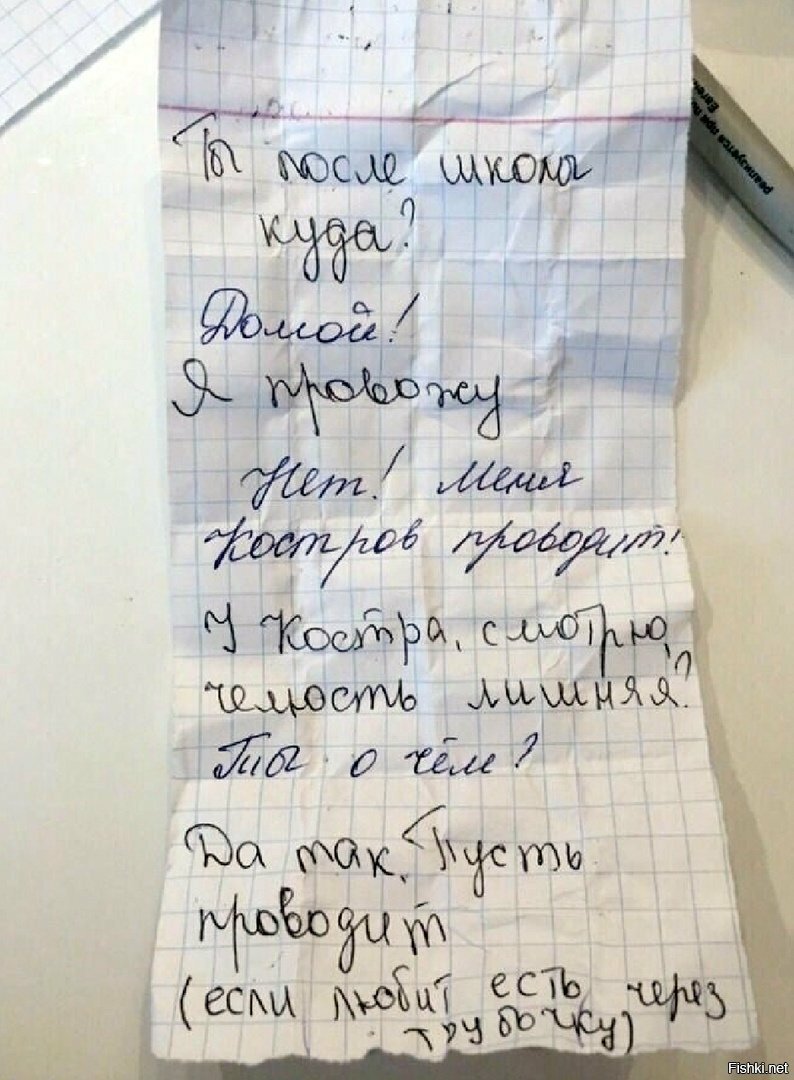 Ты после школы
куда?
Домой!
Я провожу
Нет! Меня
Костров проводит!
У Костра, смотрю,
челюсть лишняя?
Ты о чём?
Да так. Пусть
проводит
(если любит есть через
трубочку)
реализуется при по
Fishki.net